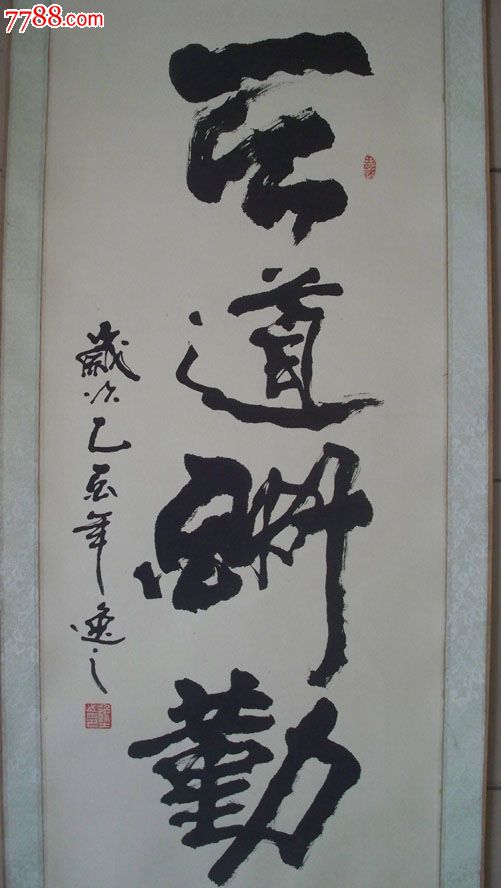 7788.com
天道酬勤
歲次乙酉年逸之